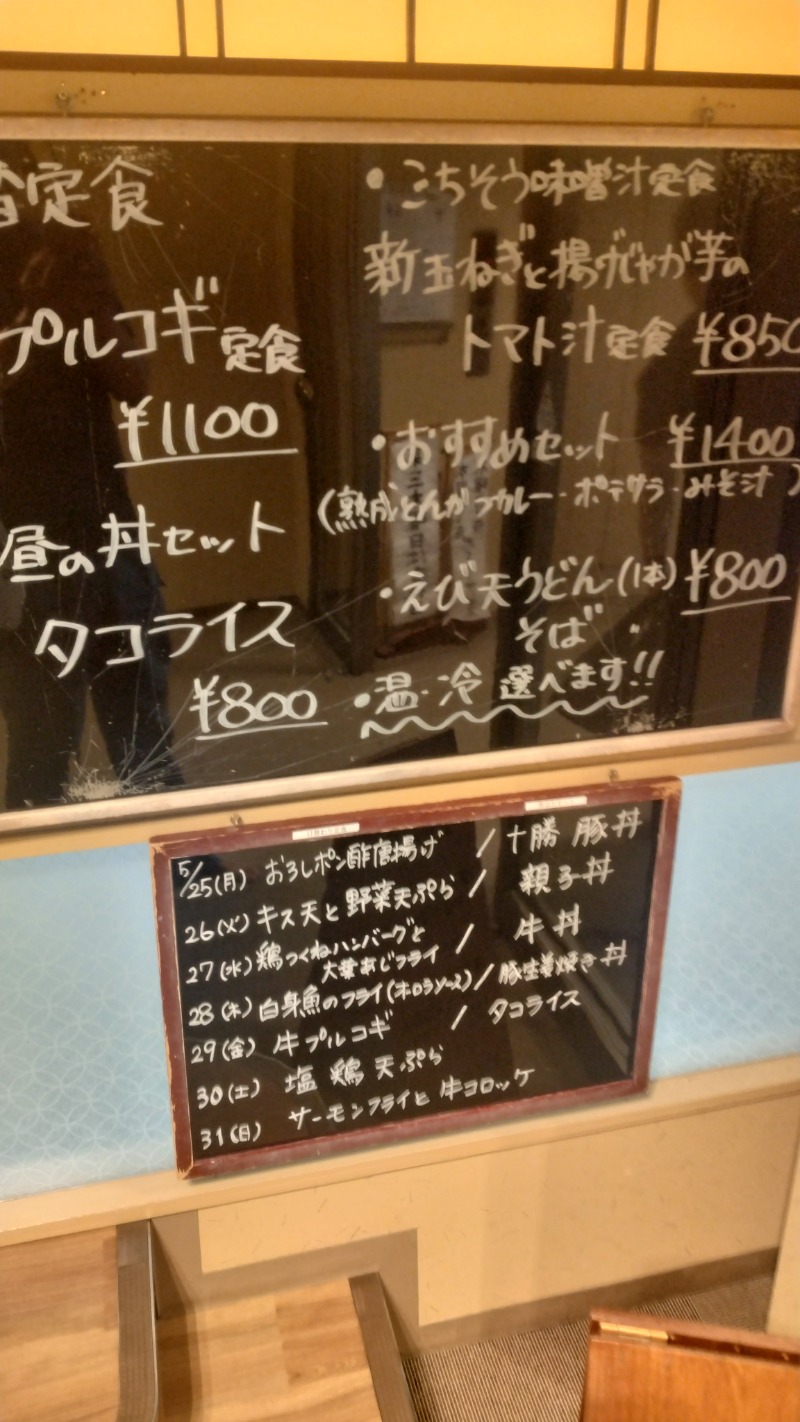 定食
プルコギ定食
¥1100
昼の丼セット
タコライス
¥800
・ごちそう味噌汁定食
新玉ねぎと揚げじゃが芋の
トマト汁定食 ¥850
・おすすめセット ¥1400
(熟成とんかつカレー・ポテサラ・みそ汁)
・えび天うどん(1本) ¥800
そば
・温・冷 選べます!!
5/25(月) おろしポン酢唐揚げ / 十勝豚丼
26(火) キス天と野菜天ぷら / 親子丼
27(水) 鶏つくねハンバーグと
大葉あじフライ / 牛丼
28(木) 白身魚のフライ(オーロラソース) / 豚生姜焼き丼
29(金) 牛プルコギ / タコライス
30(土) 塩鶏天ぷら
31(日) サーモンフライと牛コロッケ